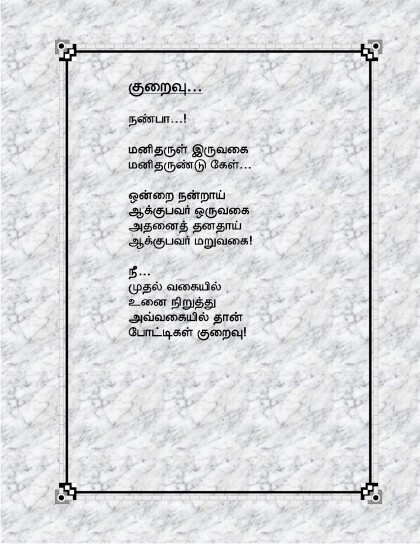 குறைவு...
நண்பா...!
மனிதருள் இருவகை
மனிதருண்டு கேள்...
ஒன்றை நன்றாய்
ஆக்குபவர் ஒருவகை
அதனைத் தனதாய்
ஆக்குபவர் மறுவகை!
நீ...
முதல் வகையில்
உனை நிறுத்து
அவ்வகையில் தான்
போட்டிகள் குறைவு!